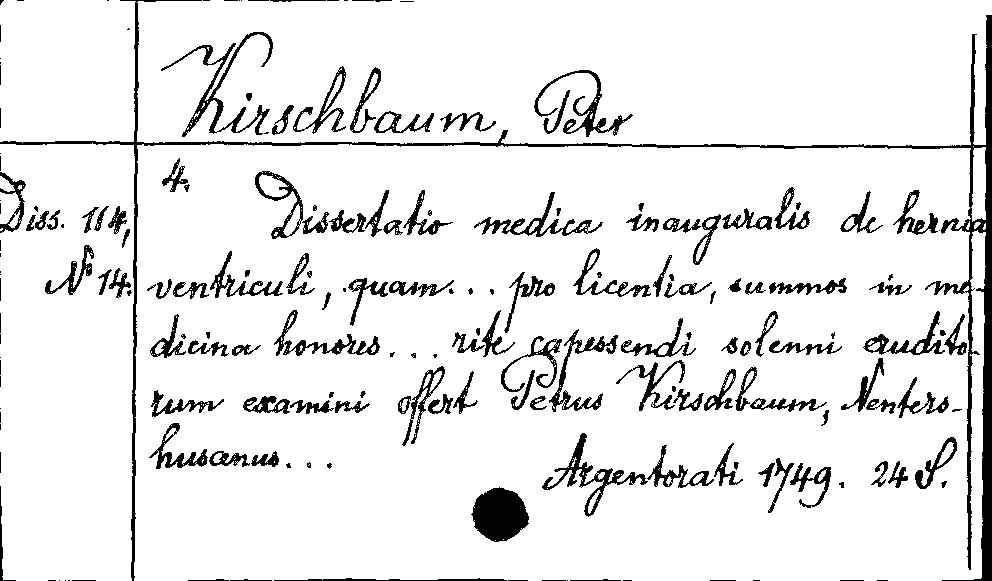 Kirschbaum, Peter
4.
Diss. 114,
No 14.
Dissertatio medica inauguralis de hernia
ventriculi, quam... pro licentia, summos in me-
dicina honores... rite capessendi solenni erudito-
rum examini offert Petrus Kirschbaum, Nenters-
husanus...
Argentorati 1749. 24 S.